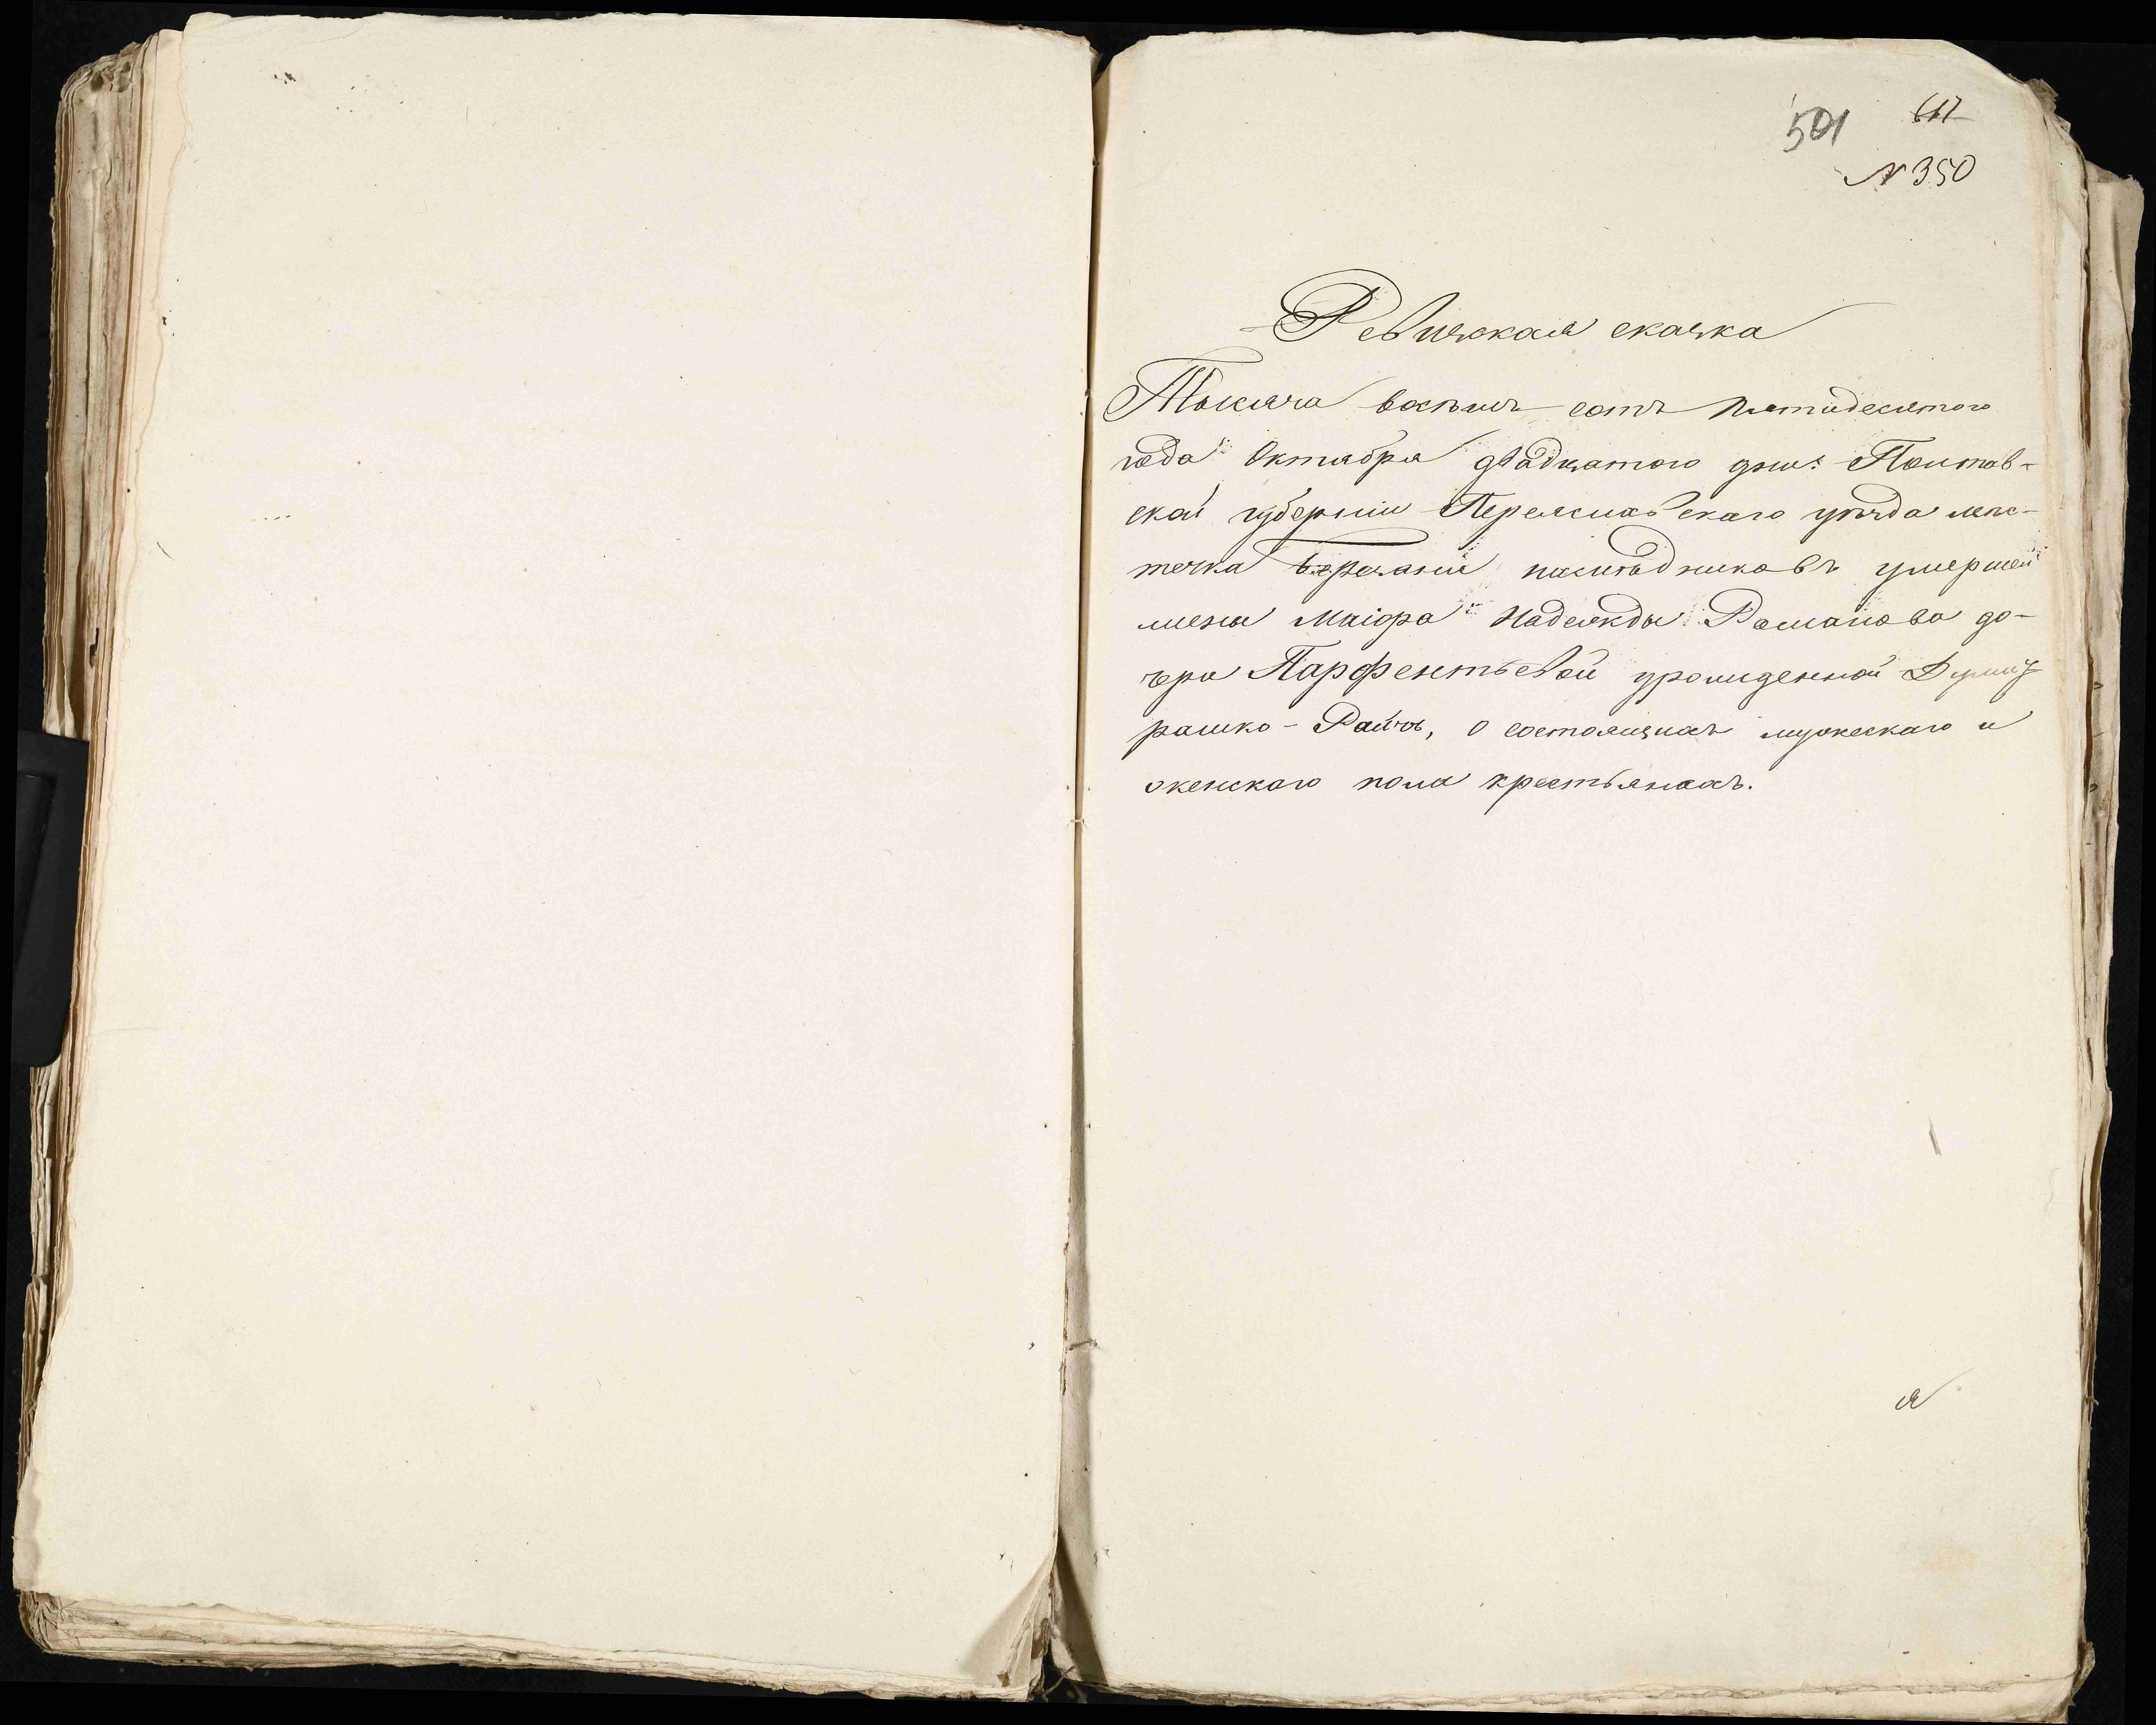 501 617
N 350
Ревизская сказка
Тысяча восемь сотъ пятидесятого
года Октября двадцатого дня: Полтав-
ской губерніи Переяславскаго уѣзда мѣс-
течка Березани наслѣдниковъ умершей
жены Маіора Надежды Романова до-
чери Парфентьевой урожденной Думит
рашко-Райчъ, о состоящихъ мужескаго и
женскаго пола крестьянахъ.